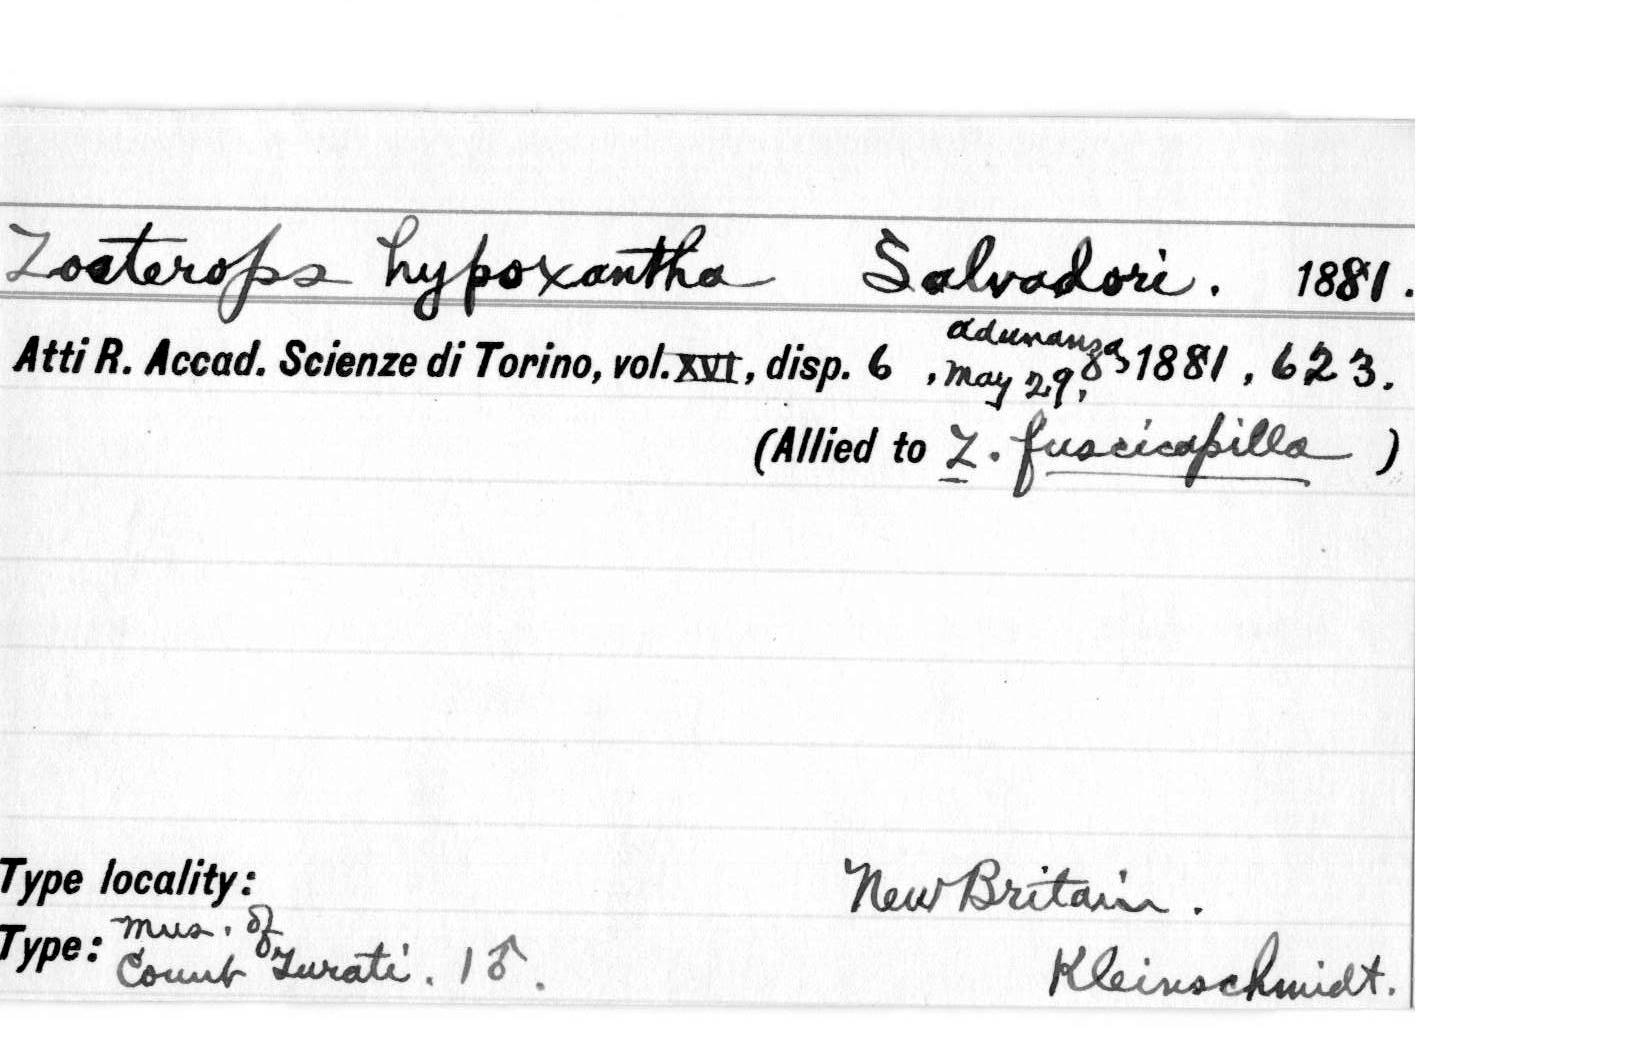 Zosterops hypoxantha Salvadori. 1881.
Atti R. Accad. Scienze di Torino, vol. XVI, disp. 6, adunanza of May 29, 1881, 623.
(Allied to Z. fuscicapilla)
Type locality: New Britain.
Type: Mus. of Count Turati. 1♂. Kleinschmidt.